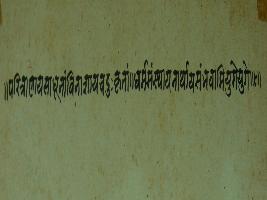 ॥परित्राणायसाधूनांविनाशायचदुःकृतां॥धर्मसंस्थापनार्थायसंभवामियुगेयुगे॥८॥